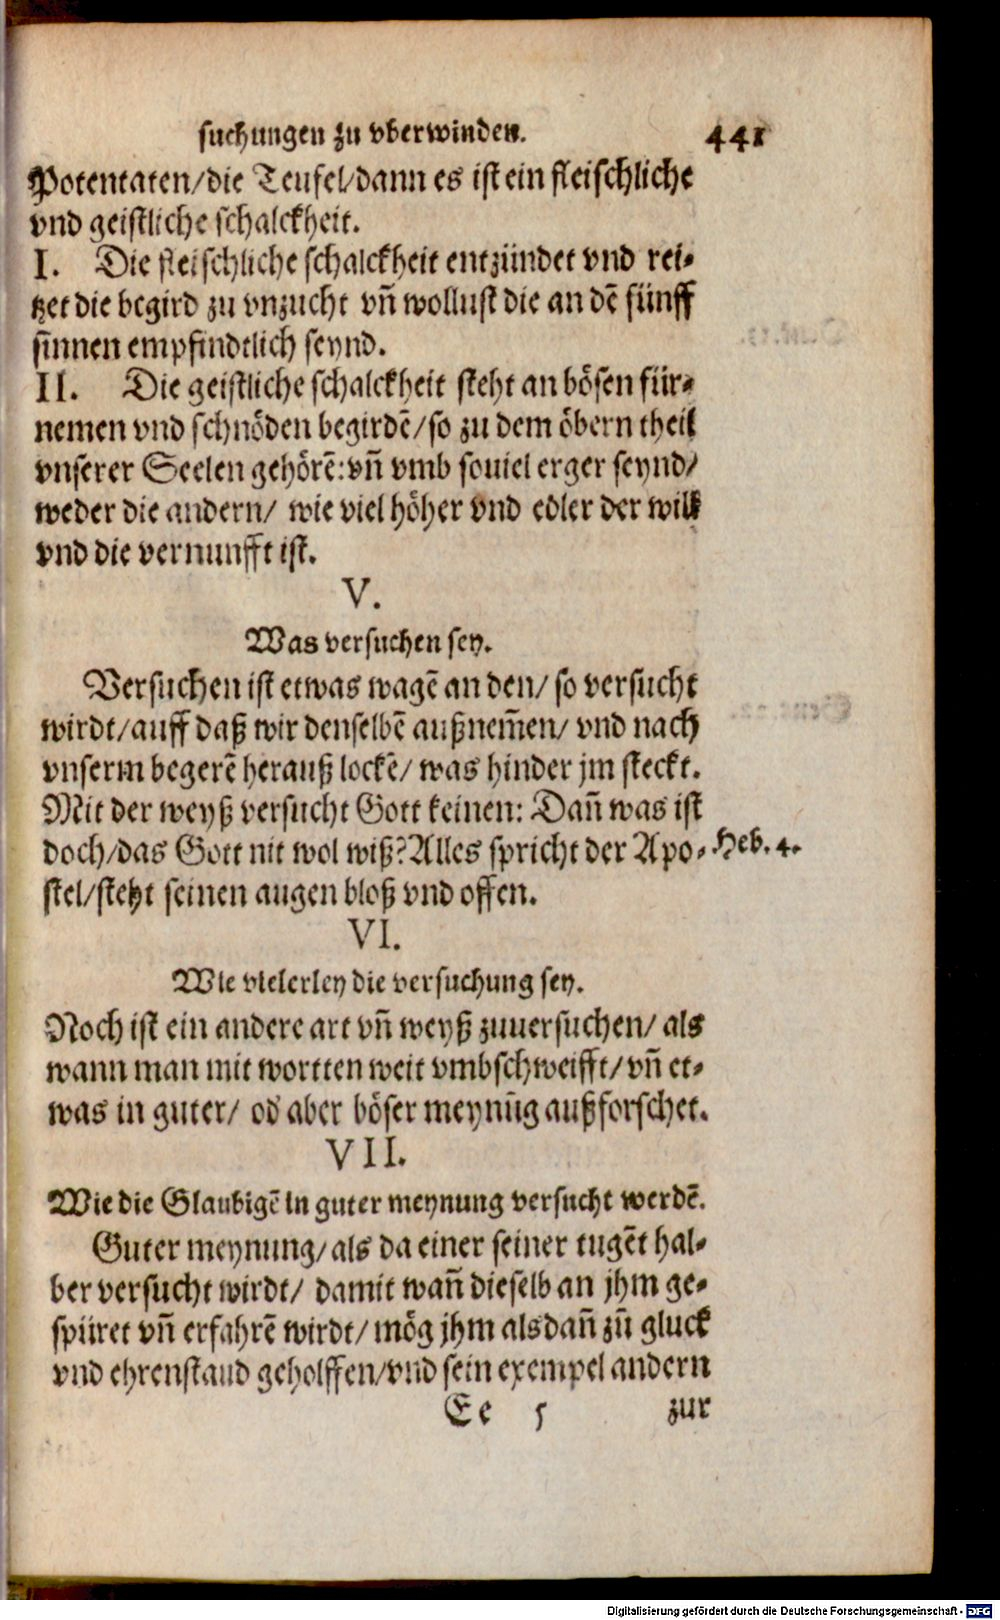 suchungen zu vberwinden. 441
Potentaten/die Teufel/dann es ist ein fleischliche
vnd geistliche schalckheit.
I. Die fleischliche schalckheit entzündet vnd rei-
tzet die begird zu vnzucht vn̄ wollust die an dē fünff
sinnen empfindtlich seynd.
II. Die geistliche schalckheit steht an bösen für-
nemen vnd schnöden begirdē/so zu dem öbern theil
vnserer Seelen gehörē: vn̄ vmb souiel erger seynd/
weder die andern/ wie viel höher vnd edler der will
vnd die vernunfft ist.
V.
Was versuchen sey.
Versuchen ist etwas wagē an den/ so versucht
wirdt/auff daß wir denselbē außnem̄en/ vnd nach
vnserm begerē herauß lockē/ was hinder jm steckt.
Mit der weyß versucht Gott keinen: Dan̄ was ist
doch/das Gott nit wol wiß? Alles spricht der Apo- Heb. 4.
stel/steht seinen augen bloß vnd offen.
VI.
Wie vielerley die versuchung sey.
Noch ist ein andere art vn̄ weyß zuuersuchen/ als
wann man mit wortten weit vmbschweifft/ vn̄ et-
was in guter/ od aber böser meynūg außforschet.
VII.
Wie die Glaubigē in guter meynung versucht werdē.
Guter meynung/als da einer seiner tugēt hal-
ber versucht wirdt/ damit wan̄ dieselb an jhm ge-
spüret vn̄ erfahrē wirdt/ mög jhm alsdan̄ zū gluck
vnd ehrenstand geholffen/vnd sein exempel andern
Ee 5 zur
Digitalisierung gefördert durch die Deutsche Forschungsgemeinschaft - DFG